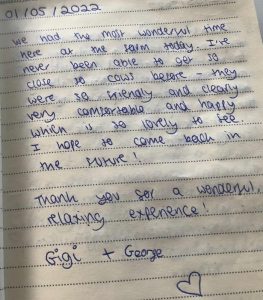 01/05/2022
We had the most wonderful time
here at the farm today. I've
never been able to get so
close to cows before - they
were so friendly and clearly
very comfortable and happy
which is so lovely to see.
I hope to come back in
the future!
Thank you for a wonderful,
relaxing experience!
Gigi + George